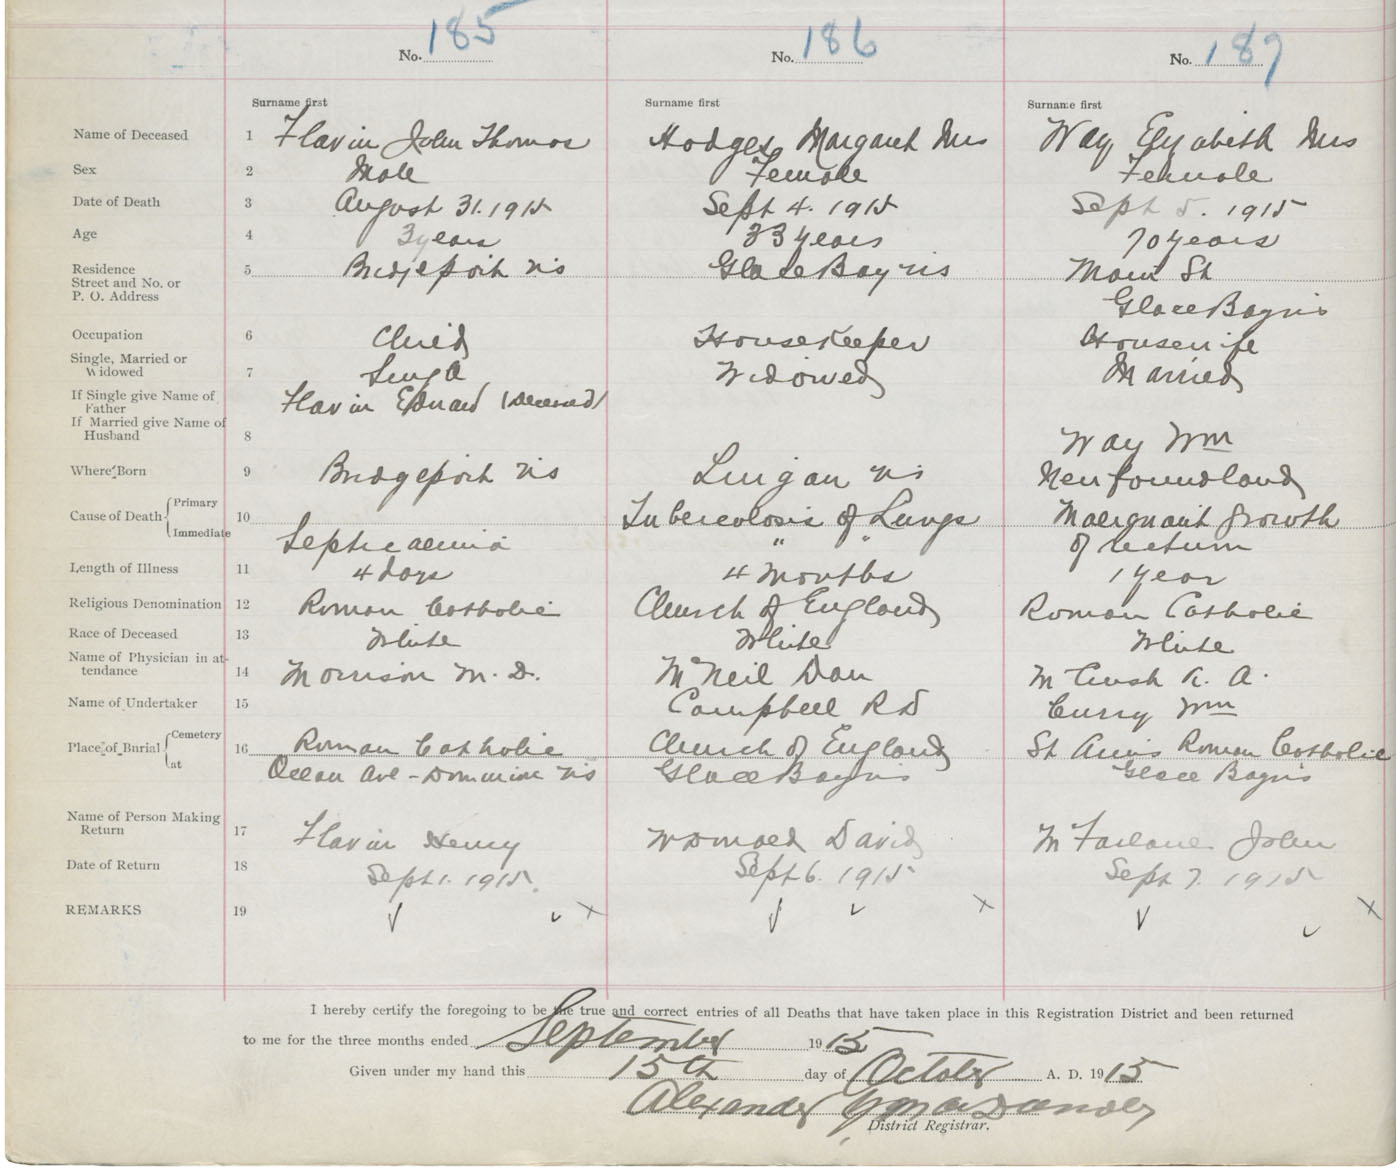 No. 185 No. 186 No. 187
Surname first Surname first Surname first
Name of Deceased 1 Flavin John Thomas Hodges Margaret Mrs Way Elizabeth Mrs
Sex 2 Male Female Female
Date of Death 3 August 31. 1915 Sept 4. 1915 Sept 5. 1915
Age 4 3 years 33 years 70 years
Residence 5 Bridgeport NS Glace Bay NS Main St
Street and No. or
P. O. Address Glace Bay NS
Occupation 6 Child Housekeeper Housewife
Single, Married or
Widowed 7 Single Widowed Married
If Single give Name of Flavin Edward (Deceased)
Father
If Married give Name of
Husband 8 Way Wm
Where Born 9 Bridgeport NS Lingan NS Newfoundland
Cause of Death { Primary 10 Tuberculosis of Lungs Malignant Growth
Immediate Septicaemia " " of rectum
Length of Illness 11 4 days 4 Months 1 year
Religious Denomination 12 Roman Catholic Church of England Roman Catholic
Race of Deceased 13 White White White
Name of Physician in at-
tendance 14 Morrison M. D. McNeil Dan
Name of Undertaker 15 Campbell R D Curry Wm
Place of Burial { Cemetery 16 Roman Catholic Church of England St Anns Roman Catholic
at Ocean Ave - Dominion NS Glace Bay NS Glace Bay NS
Name of Person Making
Return 17 Flavin Henry David McFarlane John
Date of Return 18 Sept 1. 1915. Sept 6. 1915 Sept 7. 1915
REMARKS 19
I hereby certify the foregoing to be the true and correct entries of all Deaths that have taken place in this Registration District and been returned
to me for the three months ended September 1915
Given under my hand this 15th day of October A. D. 1915
Alexander
District Registrar.